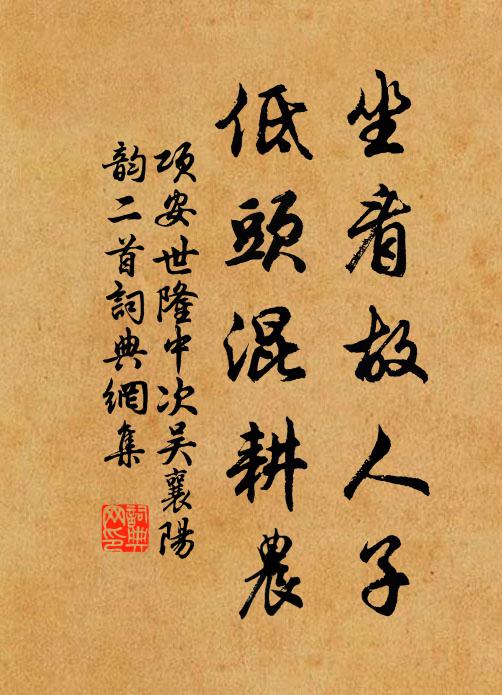 坐看故人子
低頭混耕農
項安世隆中次吴襄陽
韵二首詞典網集
詞典
网印